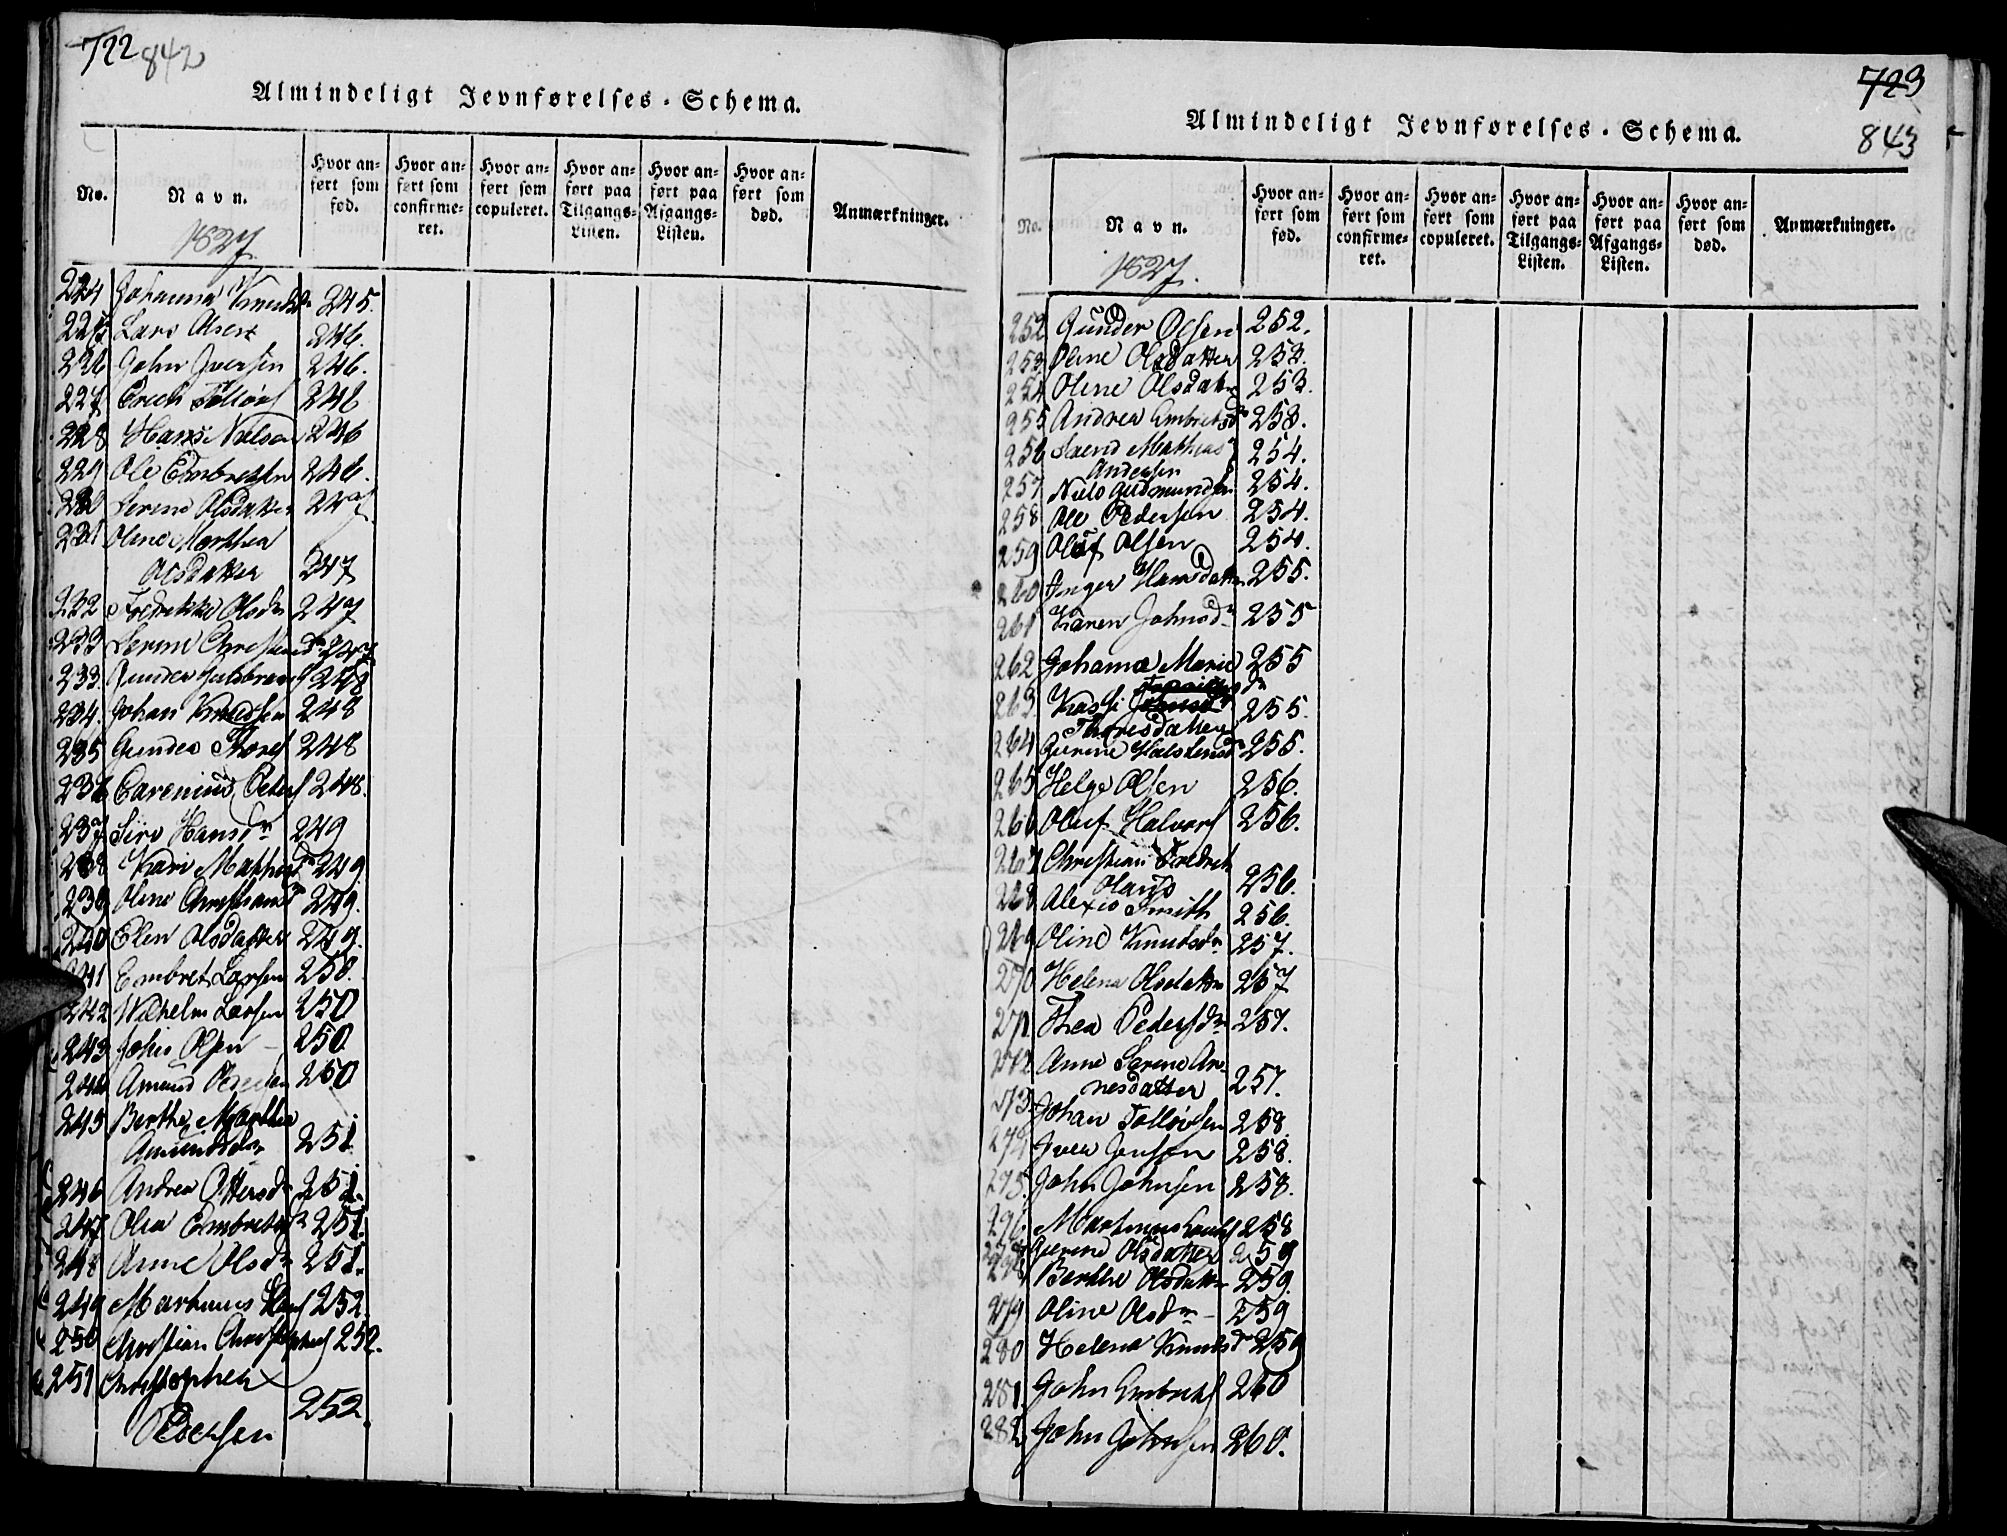 722 842
Almindeligt Jevnførelses-Schema.
No.
Navn.
Hvor anført som fød.
Hvor anført som confirmeret.
Hvor anført som copuleret.
Hvor anført paa Tilgangs-Listen.
Hvor anført paa Afgangs-Listen.
Hvor anført som død.
Anmærkninger.
1827.
224 Johanna 245.
225 Lars Olsen 246.
226 John Iversen 246.
227 Erich 246
228 Hans Nielsen 246
229 Ole Embretsen 246.
230 Serene Olsdatter 247
231 Oline Marthea
Olsdatter 247
232 Fredrikke Olsdr 247
233 Serene 247
233. Gunder 248
234. Johan Knudsen 248
235 Gunder 248
236 Carenius Peders 248.
237 Siri Hansdr 249
238 Kari 249
239 Oline 249.
240 Elen Olsdatter 249.
241 Embret Larsen 250.
242 Wilhelm Larsen 250
243 Johs Olsen 250.
244 Amund Pedersen 250
245 Berthe Marthea
Amundsdr 251
246 Andrea Ottersdr 251.
247 Olea Embretsdr 251.
248 Anne Olsdr 251.
249 Martinus 252.
250 Christian 252.
251 Christopher
Pedersen 252.
723
843
Almindeligt Jevnførelses-Schema.
No.
Navn.
Hvor anført som fød.
Hvor anført som confirmeret.
Hvor anført som copuleret.
Hvor anført paa Tilgangs-Listen.
Hvor anført paa Afgangs-Listen.
Hvor anført som død.
Anmærkninger.
1827.
252 Gunder Olsen 252.
253 Oline Olsdatter 253.
254 Oline Olsdatter 253.
255 Andrea Embretsdr 253.
256 Svend Mathias
Andersen 254.
257 Niels Gudmundsen 254.
258 Ole Pedersen 254.
259 Oluf Olsen 254.
260 Inger Hansdatter 255.
261 Karen Johnsdr 255
262 Johanne Marie 255
263
Thoresdatter 255.
264 Gurine Halstensdr 255.
265 Helge Olsen 256.
266 Oluf Halvors 256.
267 Christian Fredrik
Olaus 256.
268 Alexis Smith 256.
269 Oline Knudsdr 257.
270 Helena Olsdatter 257
271 Thea Pedersdr 257.
272 Anne Serene Ar-
nesdatter 257.
273 Johan Tollevsen 258.
274 Iver Jensen 258.
275. John Johnsen 258.
276. Martinus 258
277 Gurine Olsdatter 259
278 Berthe Olsdatter 259.
279 Oline Olsdr 259
280 Helena Knudsdr 259
281 John Embrets 260
282 John Johnsen 260.